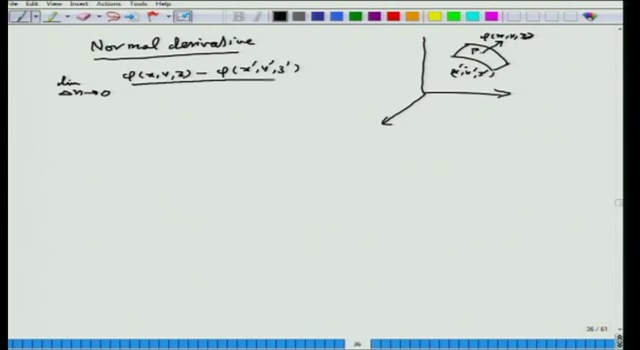 File Edit View Insert Actions Tools Help
Normal derivative
lim Δn→0 φ(x,y,z) - φ(x',y',z')
φ(x,y,z)
P
(x',y',z')
36 / 61
36